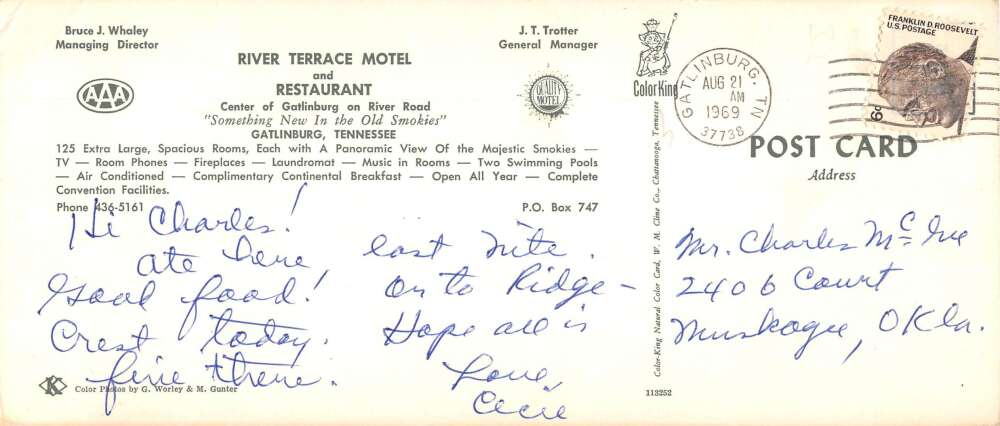 Bruce J. Whaley
Managing Director
J. T. Trotter
General Manager
RIVER TERRACE MOTEL
and
RESTAURANT
Center of Gatlinburg on River Road
"Something New In the Old Smokies"
GATLINBURG, TENNESSEE
AAA
QUALITY MOTEL
125 Extra Large, Spacious Rooms, Each with A Panoramic View Of the Majestic Smokies —
TV — Room Phones — Fireplaces — Laundromat — Music in Rooms — Two Swimming Pools
— Air Conditioned — Complimentary Continental Breakfast — Open All Year — Complete
Convention Facilities.
Phone 436-5161
P.O. Box 747
Hi Charles!
Ate here last nite.
Good food! On to Ridge-
Crest today. Hope all is
fine there.
Love,
Cecie
Color Photos by G. Worley & M. Gunter
K
113252
Color-King Natural Color Card, W. M. Cline Co., Chattanooga, Tennessee
Color King
GATLINBURG, TN
AUG 21
AM
1969
37738
FRANKLIN D. ROOSEVELT
U.S. POSTAGE
6¢
POST CARD
Address
Mr. Charles McGee
2406 Court
Muskogee, Okla.